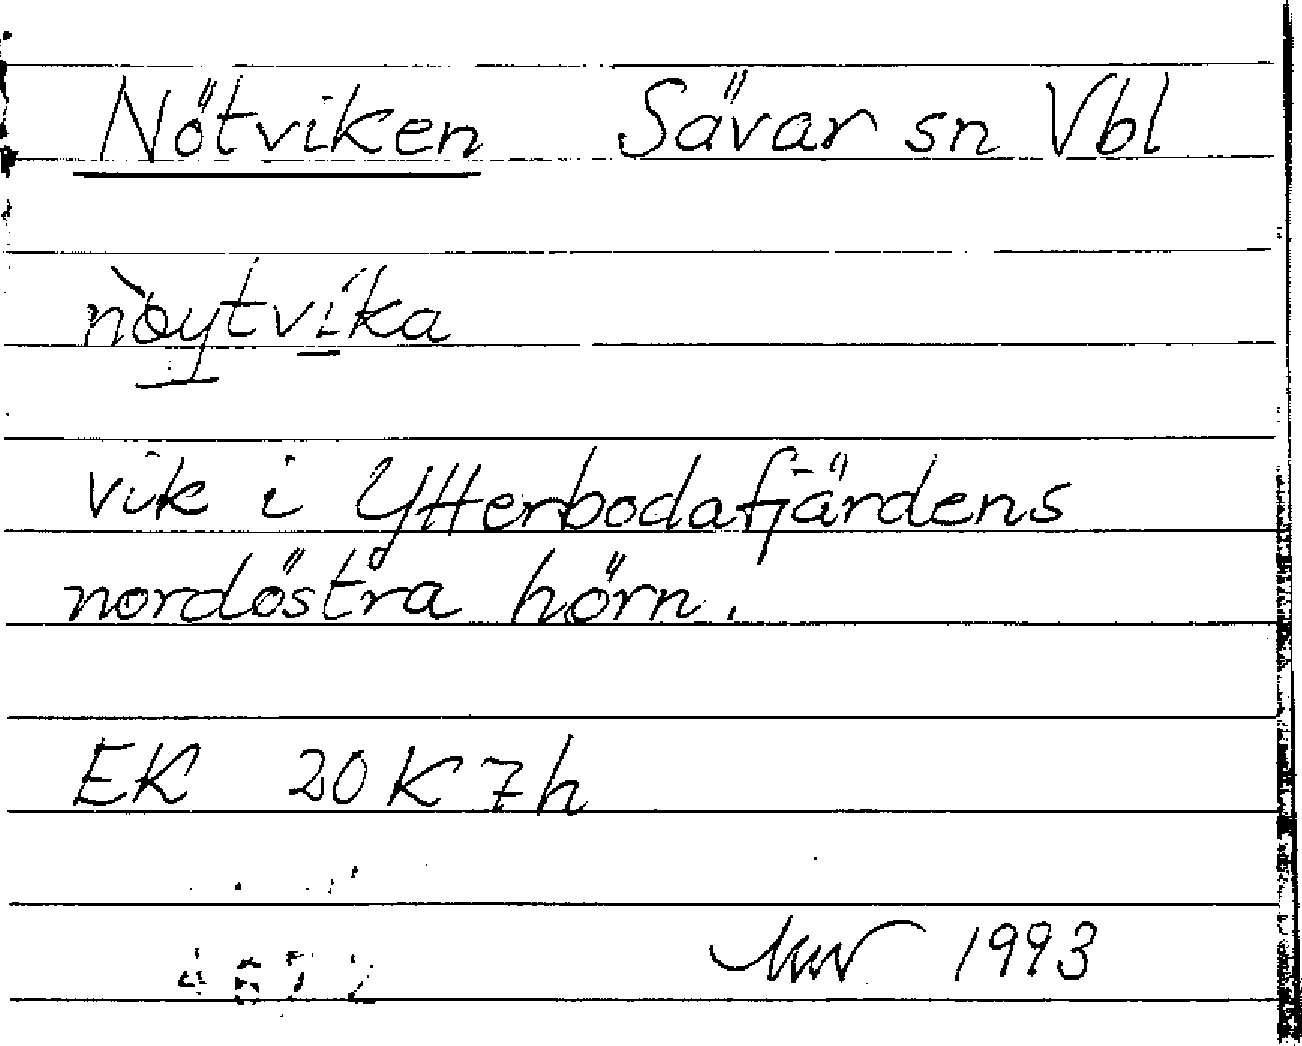 Nötviken Sävar sn Vbl
nòytvíka
vik i Ytterbodafjärdens
nordöstra hörn.
EK 20K7h
1993